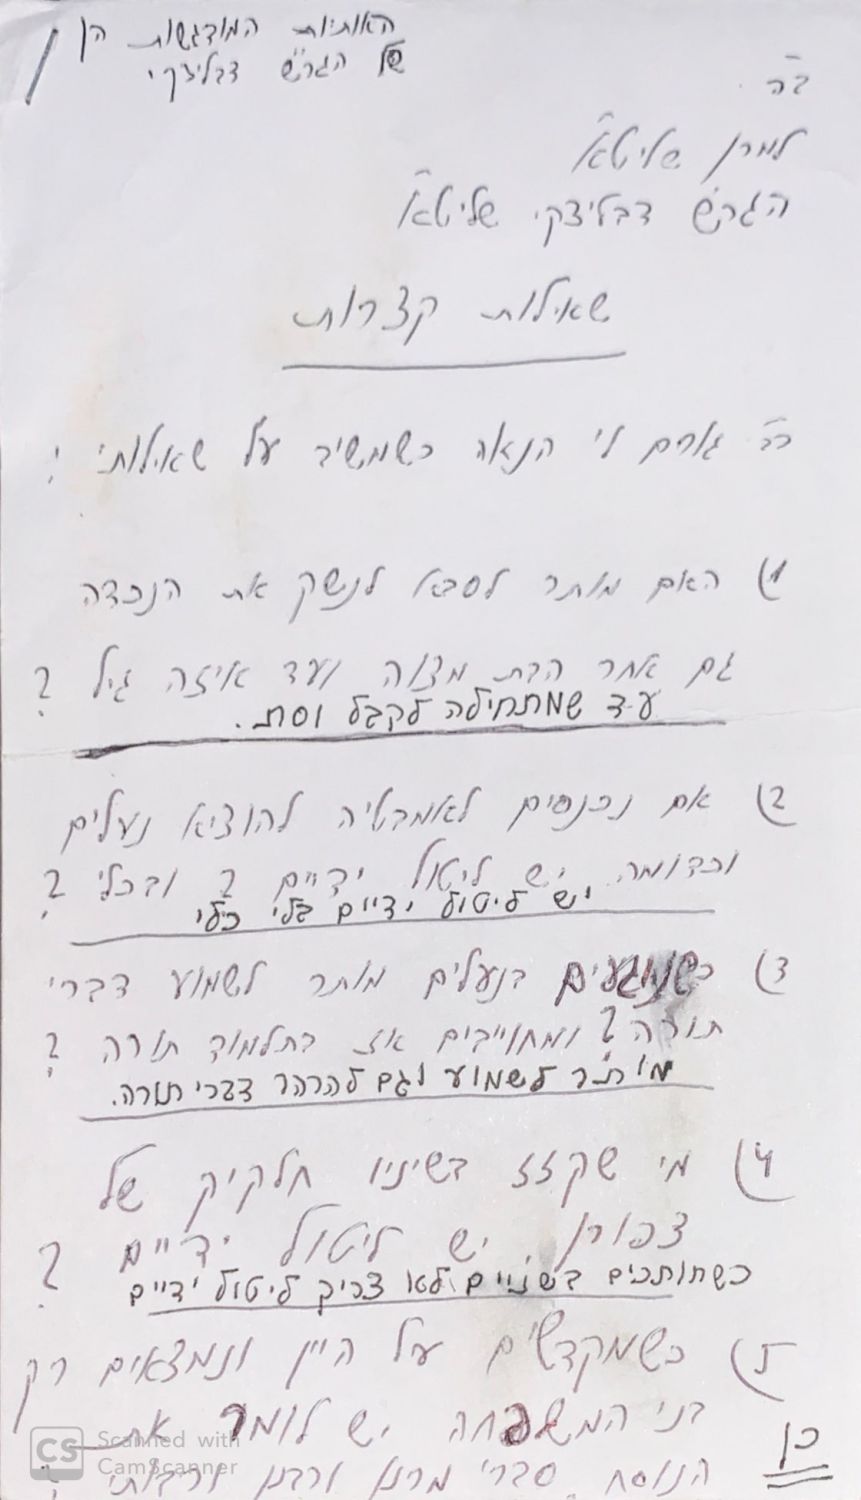 האותיות המודגשות הן
של הגר״ש דבליצקי
ב״ה
למרן שליט״א
הגר״ש דבליצקי שליט״א
שאילות קצרות
כב׳ גורם לי הנאה כשמשיב על שאילותי !
1) האם מותר לסבא לנשק את הנכדה
גם אחר הבת מצוה ועד איזה גיל ?
עד שמתחילה לקבל וסת.
2) אם נכנסים לאמבטיה להוציא נעלים
וכדומה יש ליטול ידיים ? ובכלי ?
יש ליטול ידיים בלי כלי
3) כשנוגעים בנעלים מותר לשמוע דברי
תורה ? ומחוייבים אז בתלמוד תורה ?
מותר לשמוע וגם להרהר דברי תורה.
4) מי שקזז בשיניו חלקיק של
צפורן יש ליטול ידיים ?
כשחותכים בשניים לא צריך ליטול ידיים
5) כשמקדשים על היין ונמצאים רק
בני המשפחה יש לומר את
הנוסח סברי מרנן ורבנן ורבותי ?
כן
CS Scanned with
CamScanner